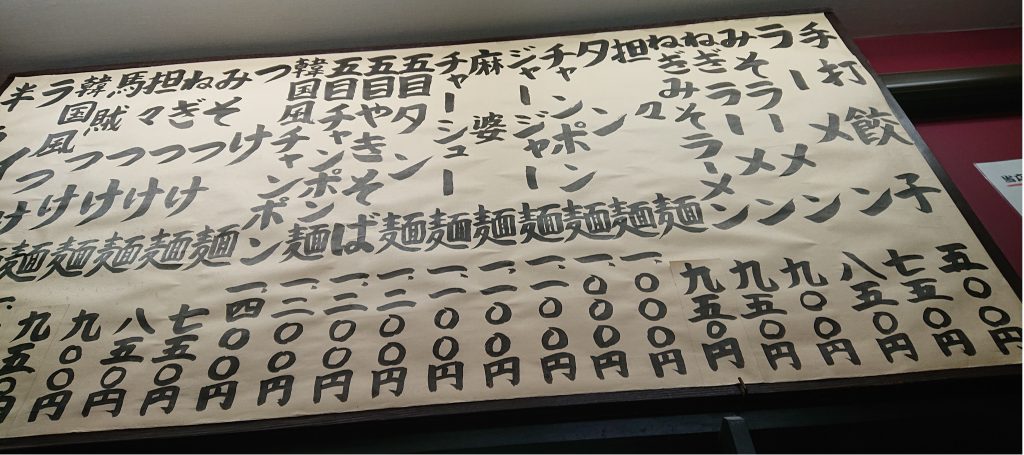 手打餃子 五〇〇円
ラーメン 七五〇円
みそラーメン 八五〇円
ねぎラーメン 九〇〇円
ねぎみそラーメン 九五〇円
担々麺 九五〇円
タン麺 一、〇〇〇円
チャンポン麺 一、〇〇〇円
ジャージャー麺 一、一〇〇円
麻婆麺 一、一〇〇円
チャーシュー麺 一、一〇〇円
五目タン麺 一、二〇〇円
五目やきそば 一、二〇〇円
五目チャンポン麺 一、二〇〇円
韓国風チャンポン 一、四〇〇円
つけ麺 七五〇円
みそつけ麺 八五〇円
ねぎつけ麺 九〇〇円
担々つけ麺 九五〇円
馬賊つけ麺
韓国風つけ
ラ
半